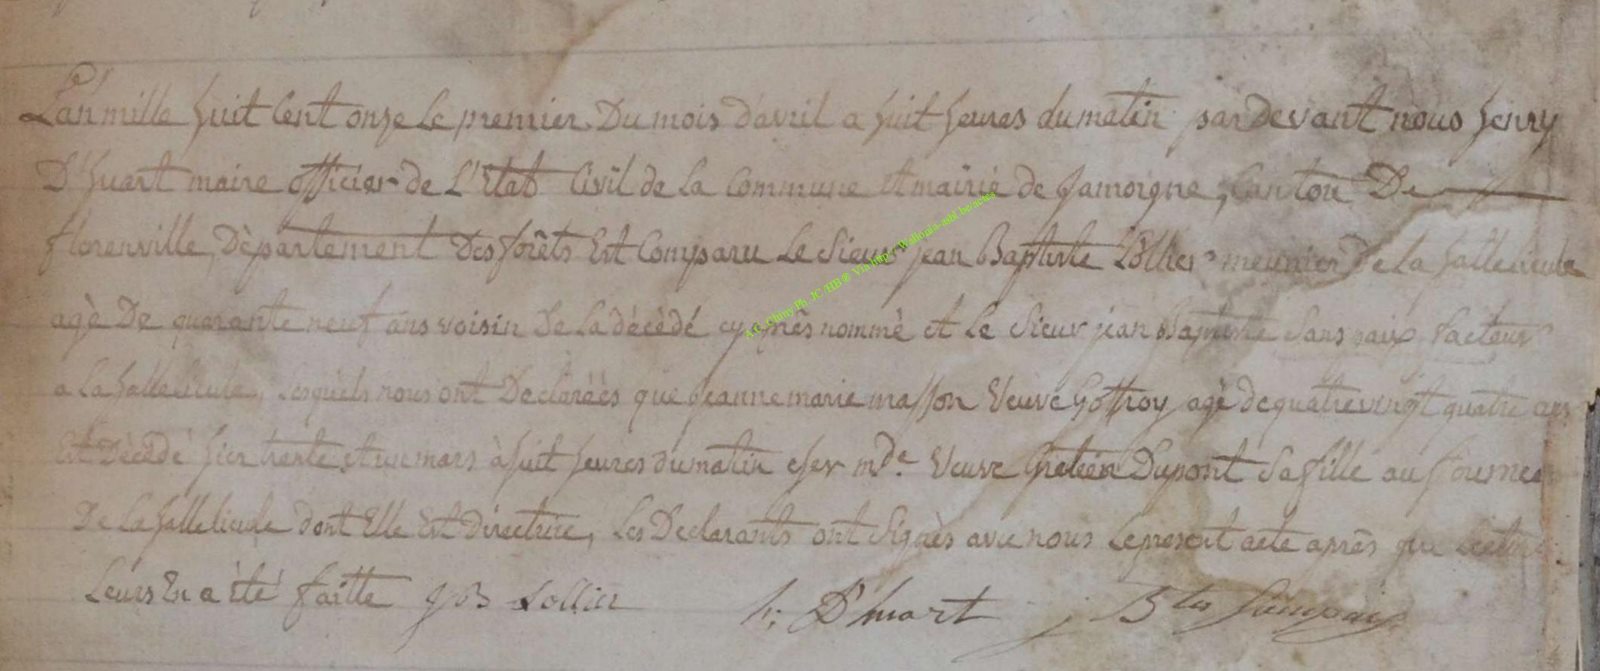 L'an mille huit Cent onze Le premier Du mois d'avril a huit heures du matin pardevant nous henry
D'huart maire officier de L'Etat Civil de La Commune et mairie de Jamoigne, Canton De
florenville, Dèpartement Des forêts Est Comparu Le Sieur jean Baptiste Lollier meunier De la hallelieule
agè De quarante neuf ans voisin De La dècèdé cy après nommè et Le Sieur jean Baptiste Sans paix facteur
a La hallelieule, Lesquels nous ont Declarèés que Jeanne marie masson Veuve Goffroy agè de quatre vingt quatre ans
Est Dècèdé hier trente et un mars à huit heures du matin cher mde. Veuve Dupont Sa fille au fourneau
De La hallelieule dont Elle Est Directrice, Les Declarants ont Signès avec nous Le present acte après que Lecture
Leurs En a èté faitte JB Lollier h: D'huart j Btes Sanspaix
A.G. Chiny Ph. JC/HB ® Via http://wallonia-asbl.be/actes/